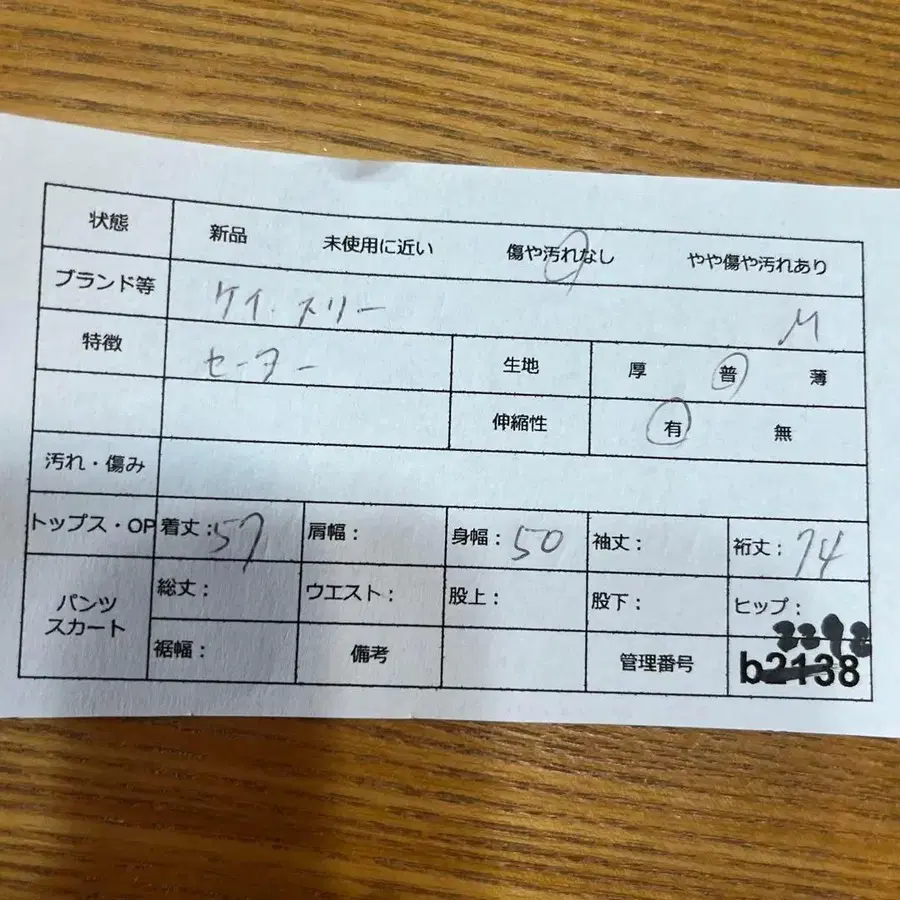 状態 新品 未使用に近い 傷や汚れなし やや傷や汚れあり
ブランド等 ケイ.スリー M
特徴 セーター 生地 厚 普 薄
伸縮性 有 無
汚れ・傷み
トップス・OP 着丈:57 肩幅: 身幅:50 袖丈: 裄丈:74
パンツ スカート 総丈: ウエスト: 股上: 股下: ヒップ:
裾幅: 備考 管理番号 b2138 2292